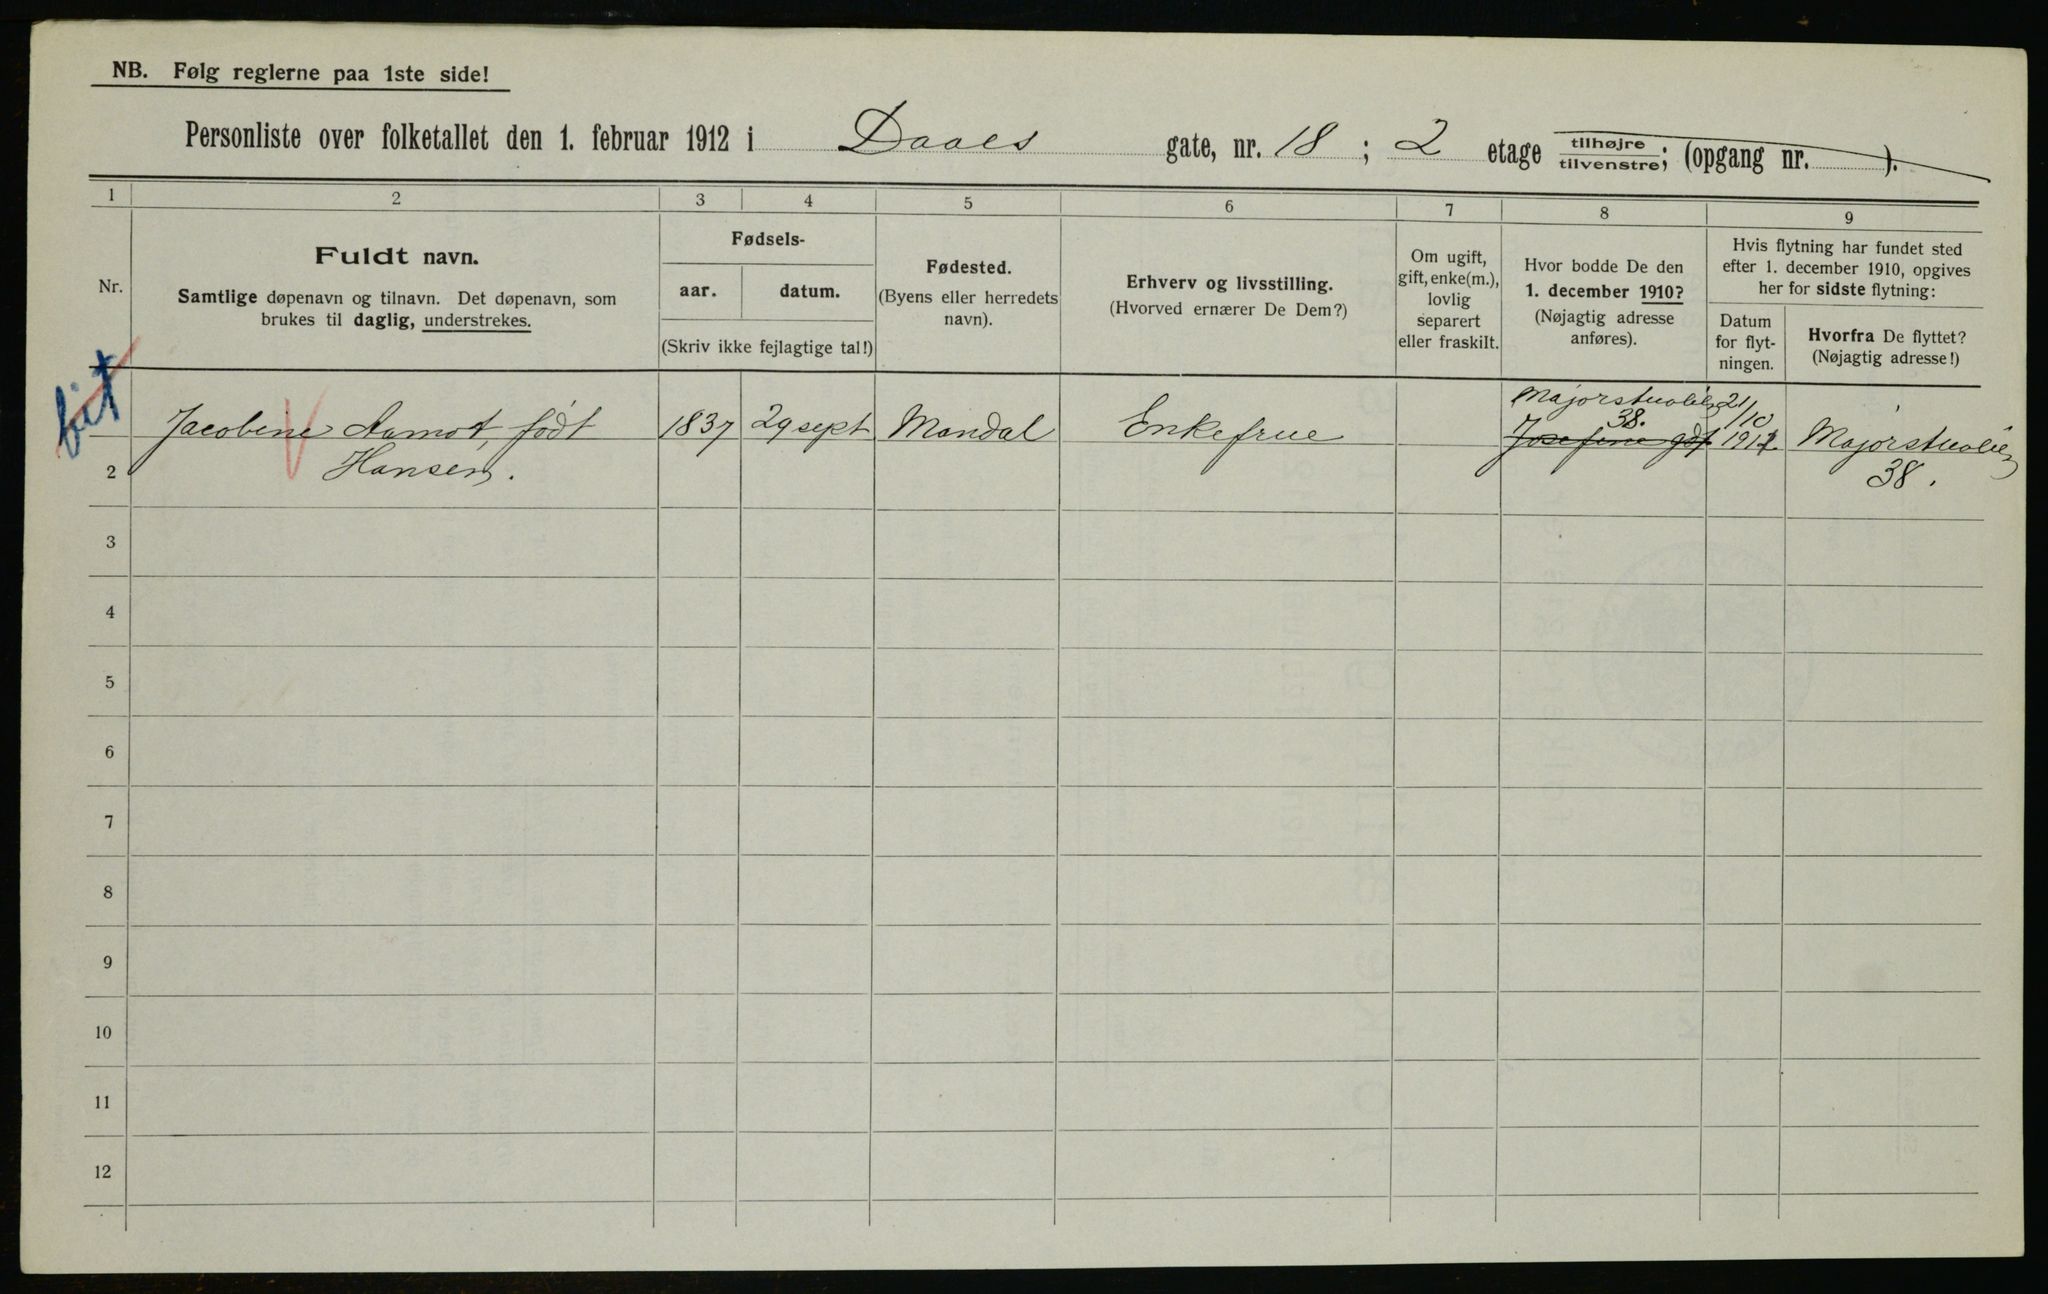 NB. Følg reglerne paa 1ste side!
Personliste over folketallet den 1. februar 1912 i Daaes gate, nr. 18; 2 etage tilhøjre tilvenstre; (opgang nr. ).
1 2 3 4 5 6 7 8 9
Nr.
Fuldt navn.
Samtlige døpenavn og tilnavn. Det døpenavn, som
brukes til daglig, understrekes.
Fødsels-
aar. datum.
(Skriv ikke fejlagtige tal!)
Fødested.
(Byens eller herredets
navn).
Erhverv og livsstilling.
(Hvorved ernærer De Dem?)
Om ugift,
gift, enke(m.),
lovlig
separert
eller fraskilt.
Hvor bodde De den
1. december 1910?
(Nøjagtig adresse
anføres).
Hvis flytning har fundet sted
efter 1. december 1910, opgives
her for sidste flytning:
Datum
for flyt-
ningen.
Hvorfra De flyttet?
(Nøjagtig adresse!)
Jacobine Aamot, født
Hansen.
1837
29 sept
Mandal
Enkefrue
38.
Josefine gd
21/10
38.
2
3
4
5
6
7
8
9
10
11
12